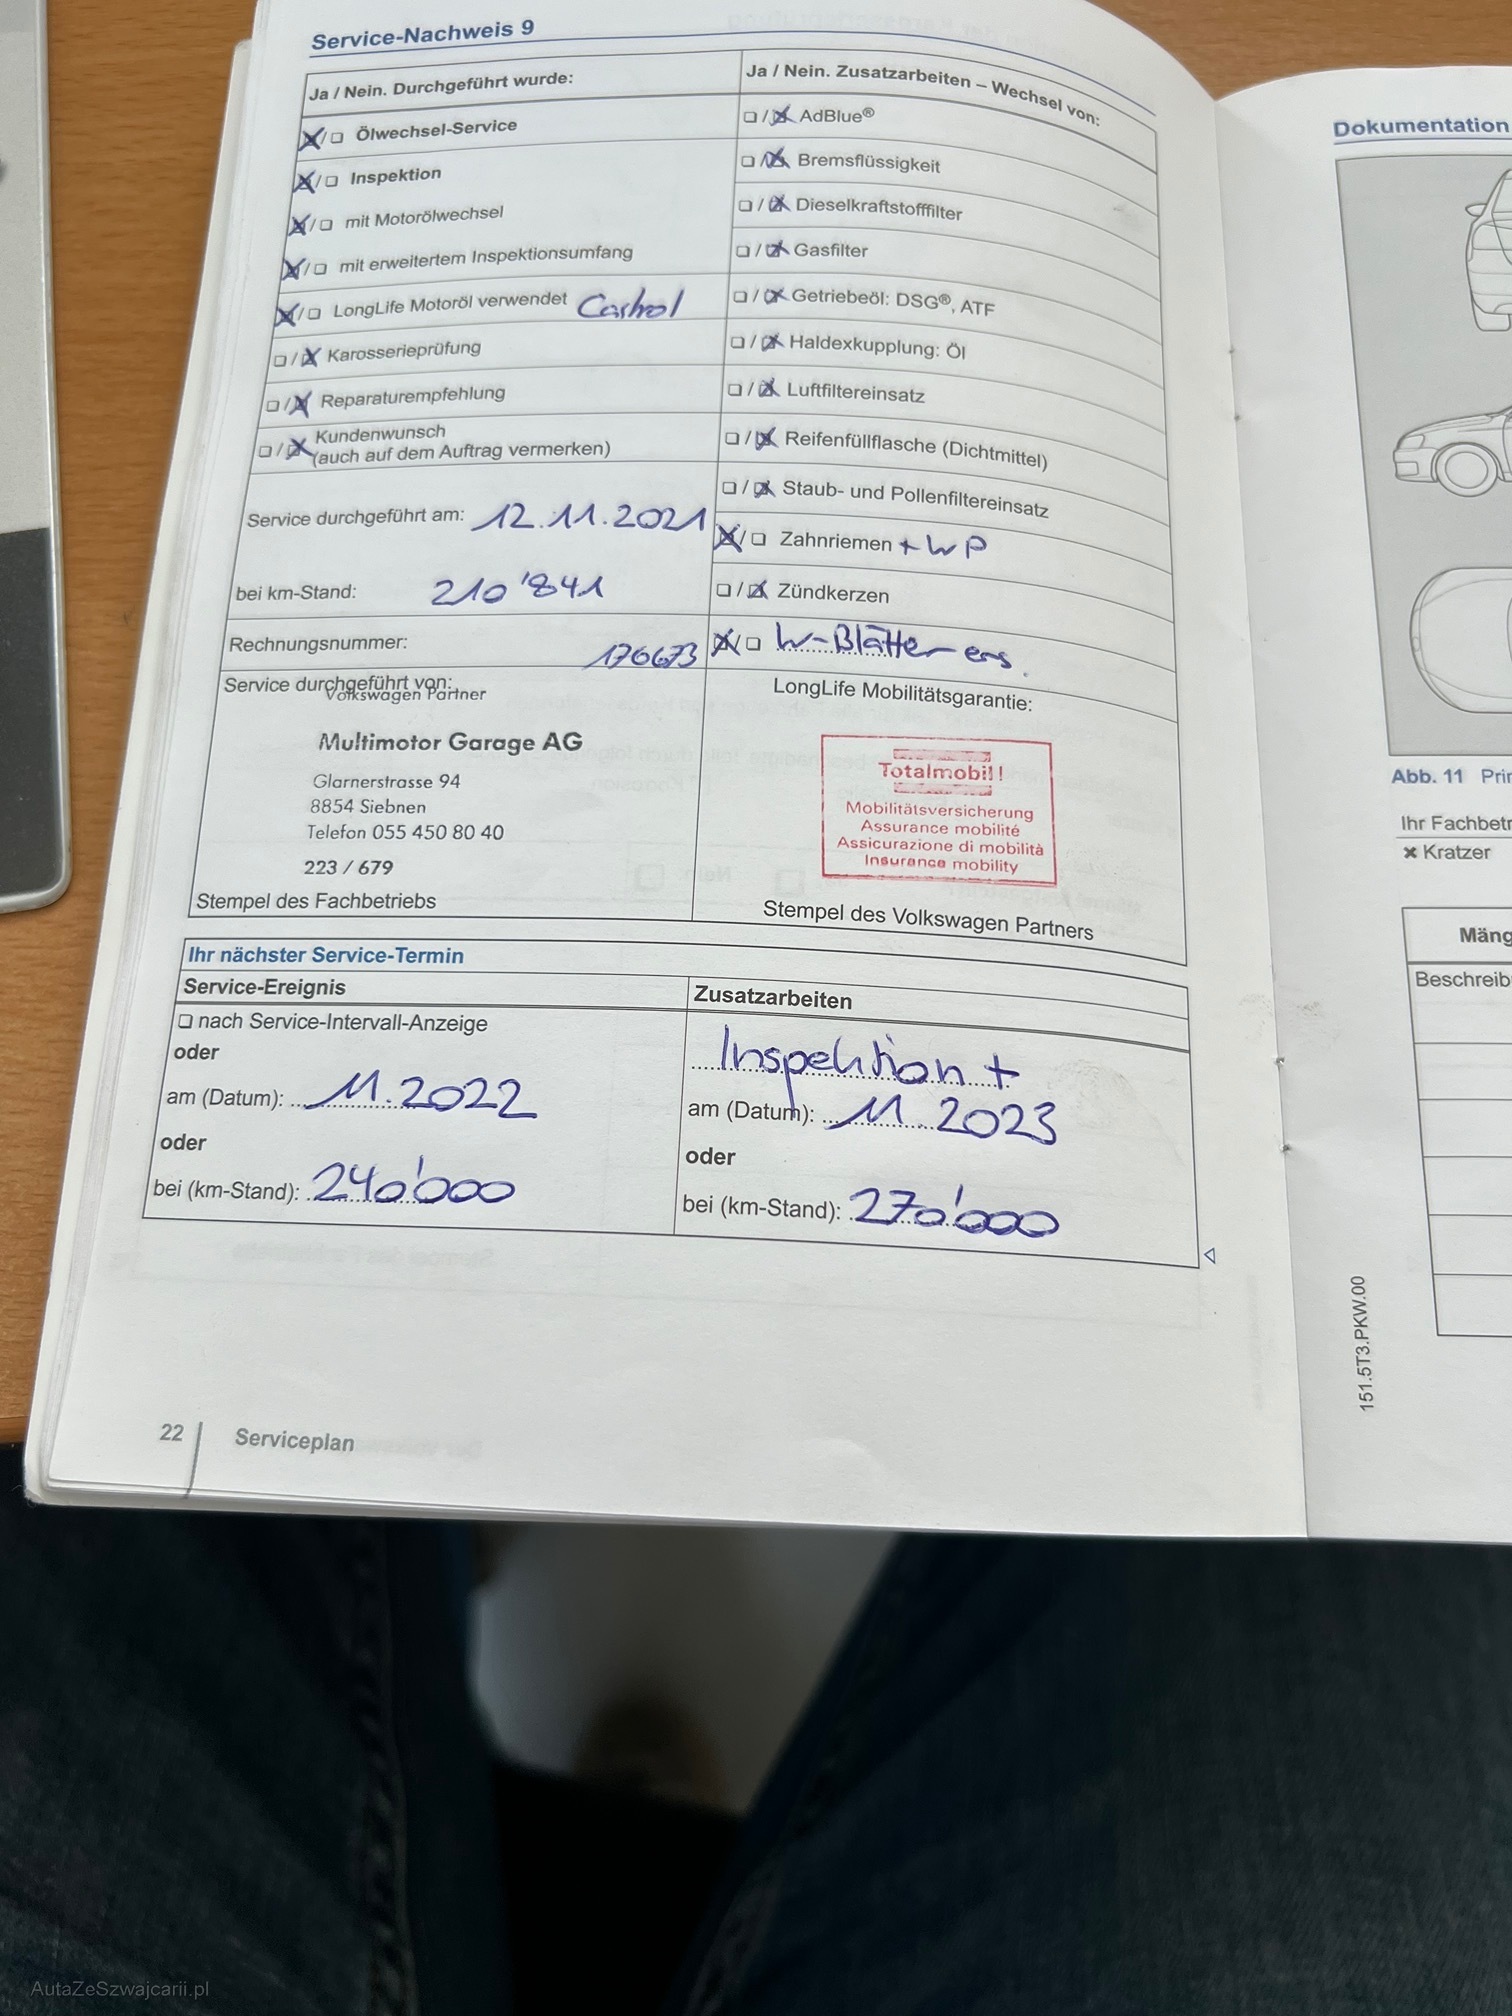 Service-Nachweis 9
Ja / Nein. Durchgeführt wurde:
Ölwechsel-Service
Inspektion
mit Motorölwechsel
mit erweitertem Inspektionsumfang
LongLife Motoröl verwendet Castrol
Karosserieprüfung
Reparaturempfehlung
Kundenwunsch
(auch auf dem Auftrag vermerken)
Service durchgeführt am: 12.11.2021
bei km-Stand: 210'841
Rechnungsnummer: 176673
Ja / Nein. Zusatzarbeiten – Wechsel von:
AdBlue®
Bremsflüssigkeit
Dieselkraftstofffilter
Gasfilter
Getriebeöl: DSG®, ATF
Haldexkupplung: Öl
Luftfiltereinsatz
Reifenfüllflasche (Dichtmittel)
Staub- und Pollenfiltereinsatz
Zahnriemen + WP
Zündkerzen
W-Blätter ers.
Service durchgeführt von:
Volkswagen Partner
Multimotor Garage AG
Glarnerstrasse 94
8854 Siebnen
Telefon 055 450 80 40
223 / 679
Stempel des Fachbetriebs
LongLife Mobilitätsgarantie:
Totalmobil!
Mobilitätsversicherung
Assurance mobilité
Assicurazione di mobilità
Insurance mobility
Stempel des Volkswagen Partners
Ihr nächster Service-Termin
Service-Ereignis
nach Service-Intervall-Anzeige
oder
am (Datum): 11.2022
oder
bei (km-Stand): 240'000
Zusatzarbeiten
Inspektion +
am (Datum): 11.2023
oder
bei (km-Stand): 270'000
22 Serviceplan
Dokumentation
Abb. 11
Ihr
Kratzer
151.5T3.PKW.00
AutaZeSzwajcarii.pl